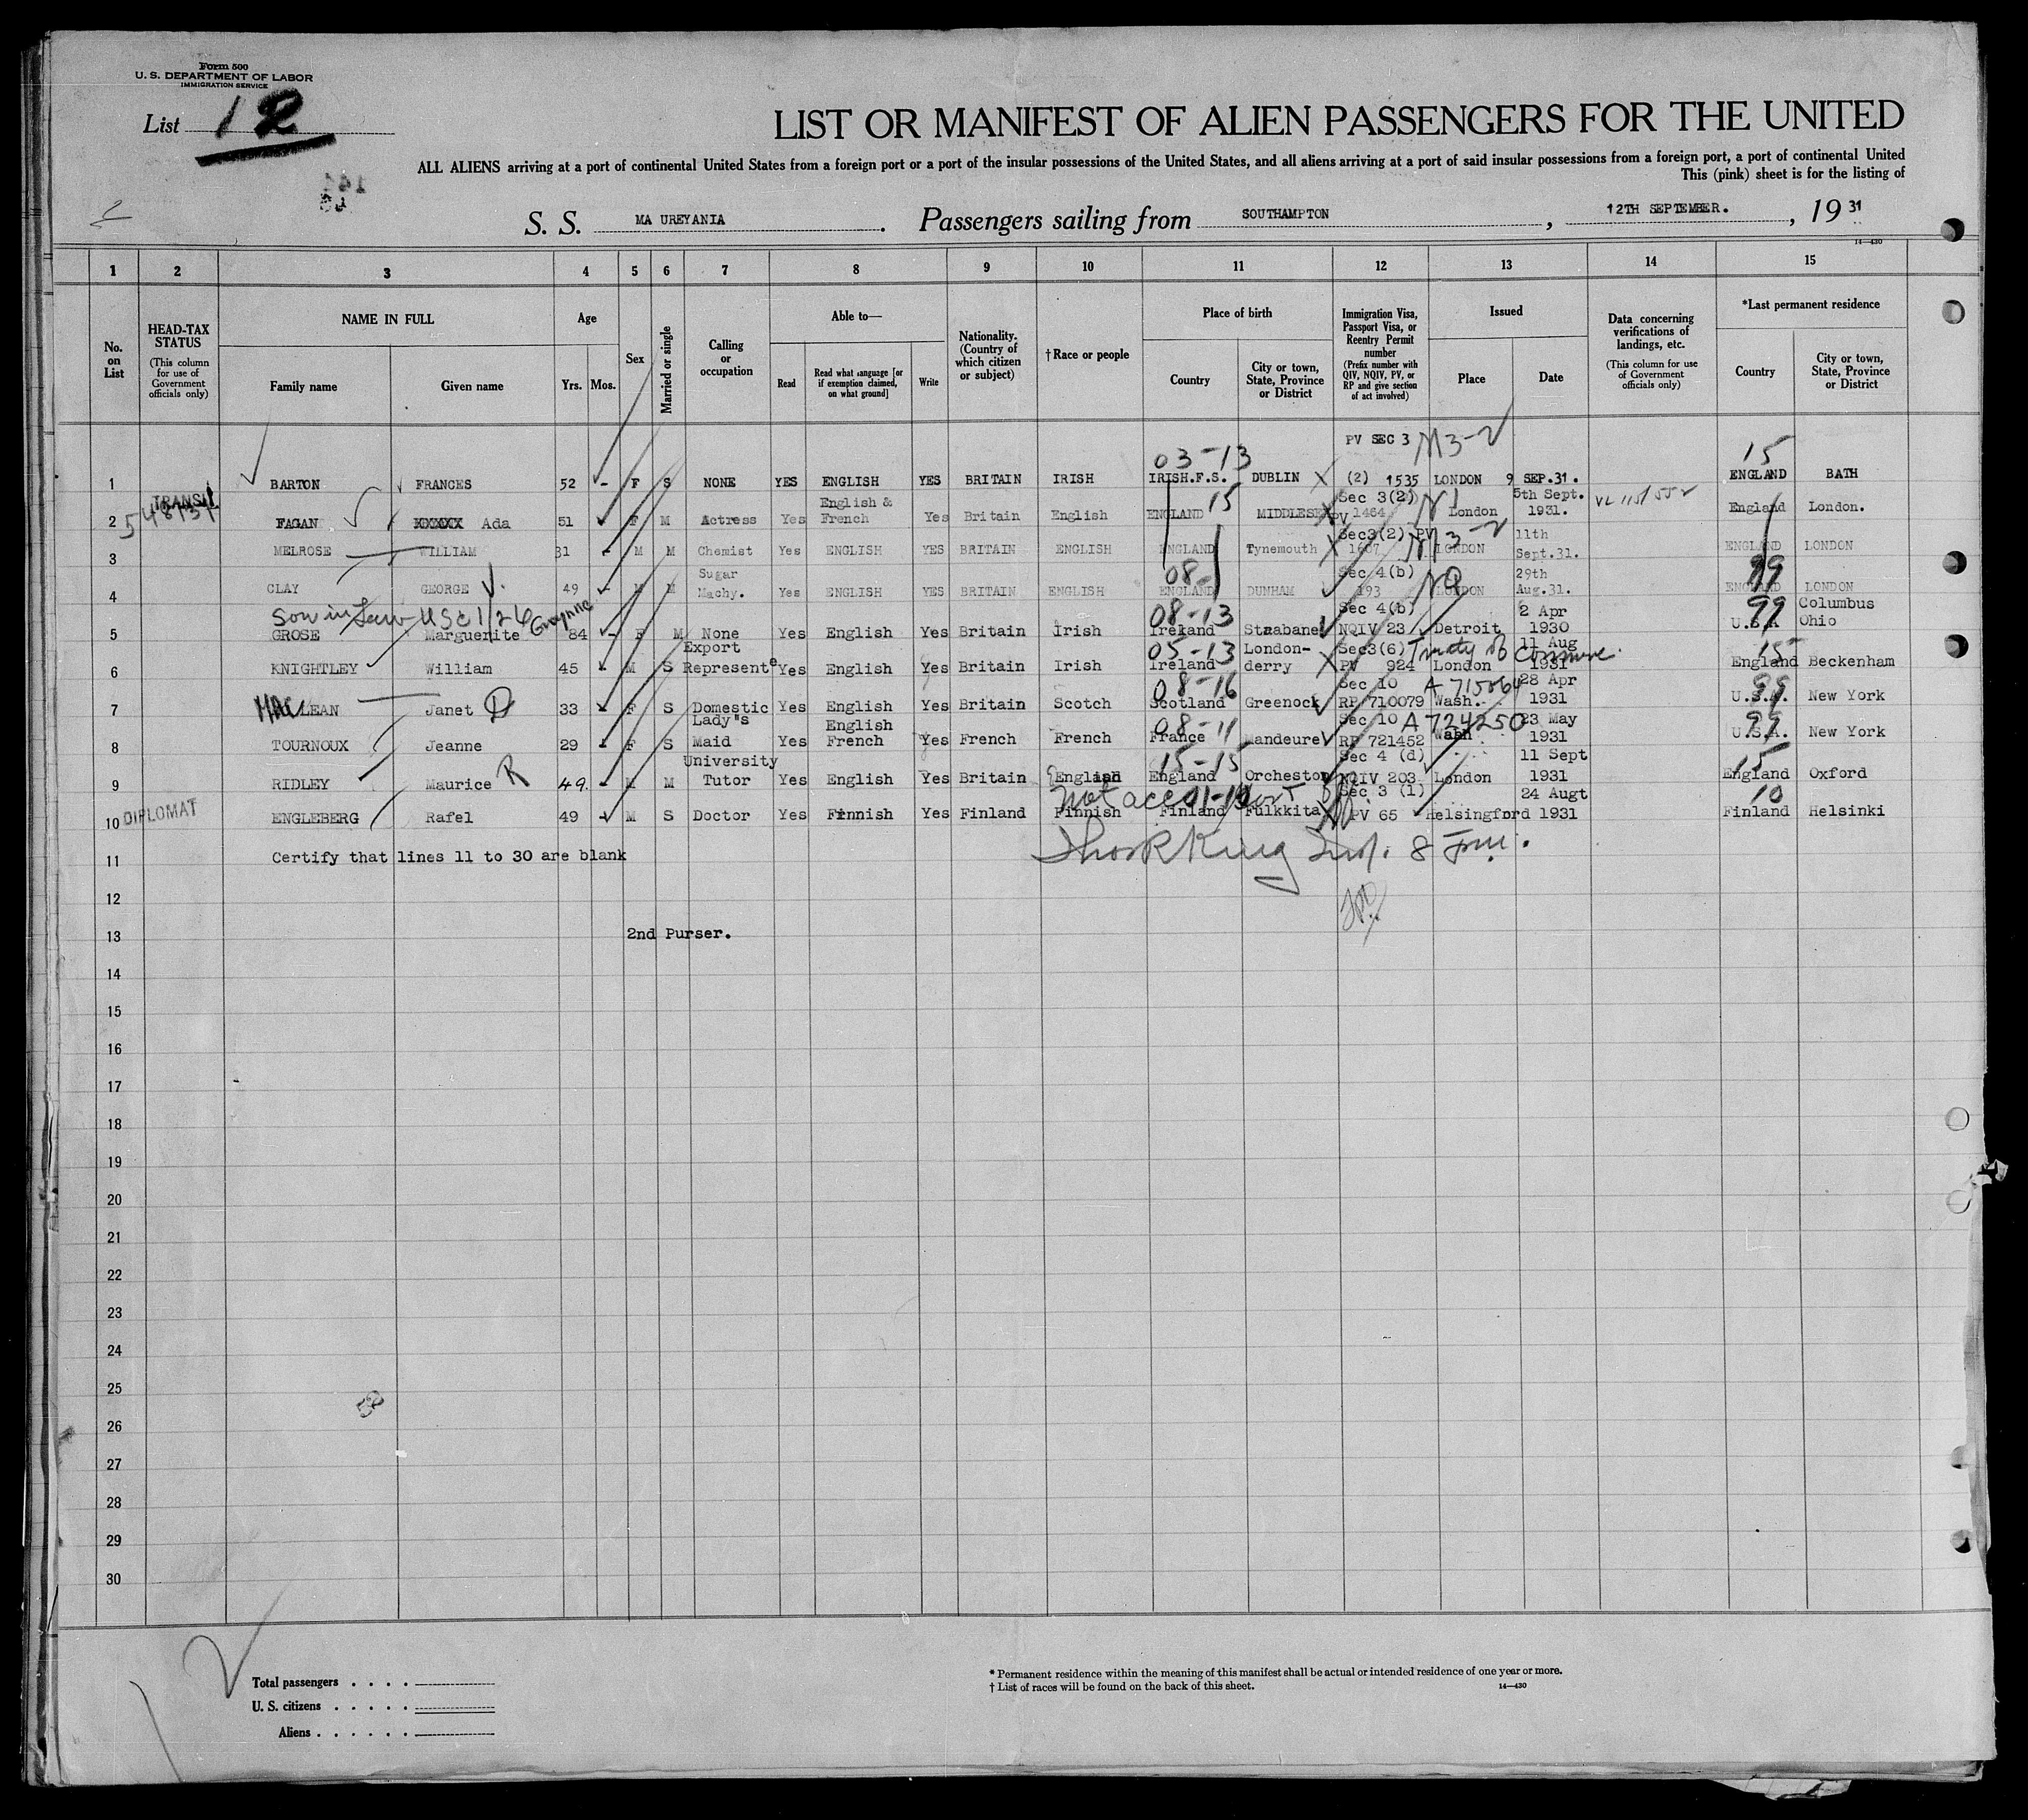 Form 500
U. S. DEPARTMENT OF LABOR
IMMIGRATION SERVICE
List 12
LIST OR MANIFEST OF ALIEN PASSENGERS FOR THE UNITED
ALL ALIENS arriving at a port of continental United States from a foreign port or a port of the insular possessions of the United States, and all aliens arriving at a port of said insular possessions from a foreign port, a port of continental United
This (pink) sheet is for the listing of
S. S. MA UREYANIA. Passengers sailing from SOUTHAMPTON, 12TH SEPTEMBER., 19 31
14—430
1 2 3 4 5 6 7 8 9 10 11 12 13 14 15
No. on List
HEAD-TAX STATUS (This column for use of Government officials only)
NAME IN FULL Family name Given name
Age Yrs. Mos.
Sex
Married or single
Calling or occupation
Able to— Read Read what language [or if exemption claimed, on what ground] Write
Nationality. (Country of which citizen or subject)
† Race or people
Place of birth Country City or town, State, Province or District
Immigration Visa, Passport Visa, or Reentry Permit number (Prefix number with QIV, NQIV, PV, or RP and give section of act involved)
Issued Place Date
Data concerning verifications of landings, etc. (This column for use of Government officials only)
*Last permanent residence Country City or town, State, Province or District
PV SEC 3 M3-2
03-13 15
1 BARTON FRANCES 52 - F S NONE YES ENGLISH YES BRITAIN IRISH IRISH.F.S. DUBLIN (2) 1535 LONDON 9 SEP.31. ENGLAND BATH
TRANSIT English & 15 Sec 3(2) 5th Sept.
2 FAGAN XXXXX Ada 51 F M Actress Yes French Yes Britain English ENGLAND MIDDLESEX PV 1464 London 1931. England London.
Sec3(2) PV M3-2 11th
3 MELROSE WILLIAM 31 - M M Chemist Yes ENGLISH YES BRITAIN ENGLISH ENGLAND Tynemouth 1607 LONDON Sept.31. ENGLAND LONDON
Sugar 08- Sec 4(b) NQ 29th 99
4 CLAY GEORGE 49 - M M Machy. Yes ENGLISH YES BRITAIN ENGLISH ENGLAND DUNHAM 193 LONDON Aug.31. ENGLAND LONDON
Son in Law USC 1/26 08-13 Sec 4(b) 2 Apr 99 Columbus
5 GROSE Marguerite 84 - F M None Yes English Yes Britain Irish Ireland Strabane NQIV 23 Detroit 1930 U.S.A Ohio
Export 05-13 London- Sec3(6) Treaty of Commerce. 11 Aug 15
6 KNIGHTLEY William 45 M S Represente Yes English Yes Britain Irish Ireland derry PV 924 London 1931 England Beckenham
08-16 Sec 10 A 715864 28 Apr 99
7 MACLEAN Janet 33 F S Domestic Yes English Yes Britain Scotch Scotland Greenock RP 710079 Wash. 1931 U.S.A. New York
Lady"s English 08-11 Sec 10 A 724250 23 May 99
8 TOURNOUX Jeanne 29 F S Maid Yes French Yes French French France Mandeure RP 721452 Wash 1931 U.S.A. New York
University 15-15 Sec 4 (d) 11 Sept 15
9 RIDLEY Maurice R 49. M M Tutor Yes English Yes Britain English England Orcheston NQIV 203 London 1931 England Oxford
DIPLOMAT Not Sec 3 (1) 24 Augt 10
10 ENGLEBERG Rafel 49 M S Doctor Yes Finnish Yes Finland Finnish Finland Fulkkita PV 65 Helsingford 1931 Finland Helsinki
11 Certify that lines 11 to 30 are blank
12
13 2nd Purser.
14
15
16
17
18
19
20
21
22
23
24
25
26
27
28
29
30
Total passengers . . . .
U. S. citizens . . . . .
Aliens . . . . . .
* Permanent residence within the meaning of this manifest shall be actual or intended residence of one year or more.
† List of races will be found on the back of this sheet.
14—430